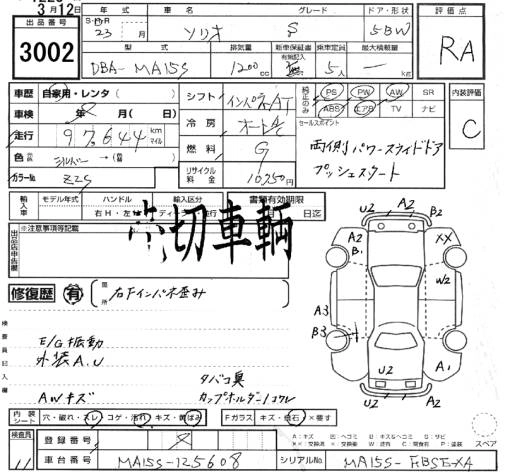 3月12日
出品番号 3002
年式 車名 グレード ドア・形状 評価点
23 月 ソリオ S 5BW RA
型式 排気量 新車保証書 乗車定員 最大積載量
DBA- MA15S 1200cc 有無記入 5人 — kg
車歴 自家用・レンタ( )
シフト インパネAT
PS PW AW SR
ABS エアB TV ナビ
内装評価 C
車検 年( )月( )日
冷房 オートA/C
セールスポイント
走行 97,644 km マイル
両側パワースライドドア
プッシュスタート
燃料 G
色 シルバー →( 替)
カラー№ ZZS
リサイクル料金 10,750円
輸入車 モデル年式 ハンドル 輸入区分 書類有効期限
右H・左 月 日迄
※注意事項等記載
切車輌
修復歴 有 箇所 右Fインパネ歪み
検査員記入欄
E/G振動
外装A,U
AWキズ
タバコ臭
カップホルダーコワレ
U2 A2 B2
A2 XX
B1 W2
A3
B3
A2 U2 A1
U2 A2
内装シート 穴・破れ・スレ コゲ・汚れ キズ・黄ばみ Fガラス キズ・飛石 ×要す
登録番号
車台番号 MA15S-125608 シリアル№
スペア
検査員